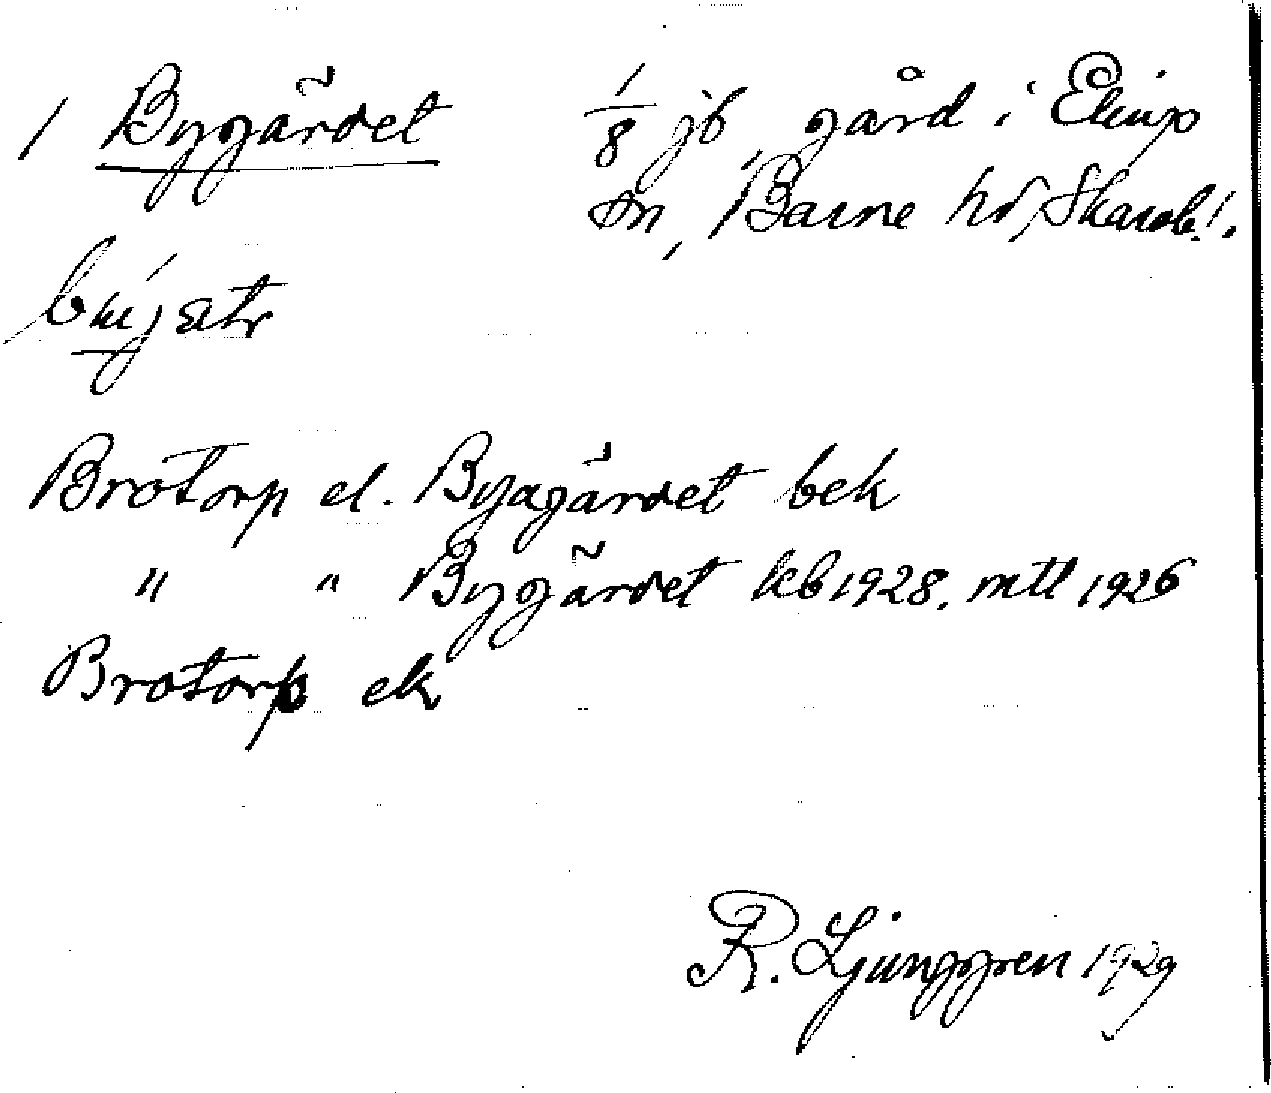 1 Bygärdet 1/8 jb, gård i Eling
sn, Barne hd, Skarab. l.
Brotorp el. Byagärdet bek
" " Bygärdet kb 1928, mtl 1926
Brotorp ek
R. Ljunggren 1929